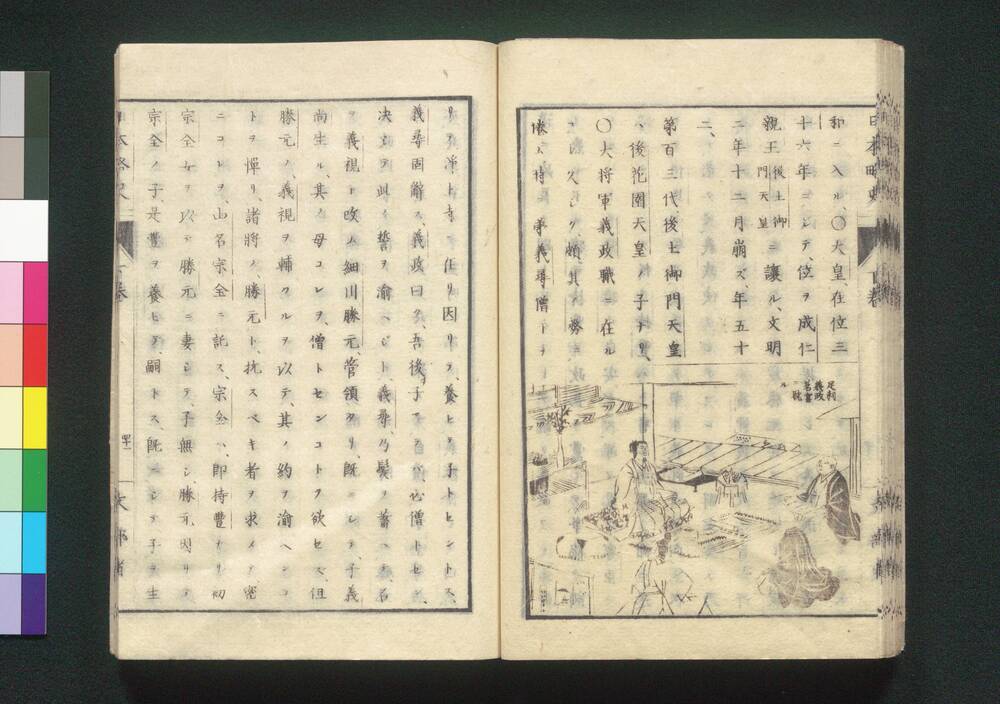 和ニ入ル、〇大皇、在位三
十六年ニシテ、位ヲ成仁
親王後土御門天皇ニ讓ル、文明
二年十二月崩ズ、年五十
二、
第百三代後土御門天皇
ハ後花園天皇ノ子ナリ、
〇大将軍義政職ニ在ル
久シク、頗其ノ勞ニ
倦ム、時義尋僧トナ
足利義政茗宴ニ耽ル
リテ浄土寺ニ住リ因リテ、養ヒテ子トセントス、
義尋固辭ス、義政曰ク、吾後子アルモ、必僧トセン、
決シテ此ノ誓ヲ渝ヘジト、義尋乃髪ヲ蓄ヘテ、名
ヲ義視ト改ム、細川勝元、管領タリ、既ニシテ、子義
尚生ル、其ノ母コレヲ、僧トセンコトヲ欲セズ、但
勝元ノ、義視ヲ輔クルヲ以テ、其ノ約ヲ渝ヘンコ
トヲ憚リ、諸將ノ、勝元ト、抗スベキ者ヲ求メテ密
ニコレヲ、山名宗全ニ託ス、宗全ハ、即持豊ナリ、初
宗全女ヲ以テ勝元ニ妻シテ、子無シ、勝元、因リテ
宗全ノ子、是豊ヲ養ヒテ、嗣トス、既ニシテ子ヲ生